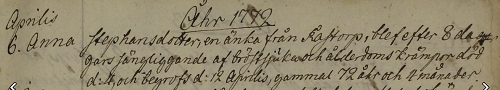 Aprilis Åhr 1772
6. Anna Stephansdotter, en änka från Kastorp, blef efter 8 da-
gars sängliggande af bröstsjuka och ålderdoms krämpor död
d: 6 och begrofs d: 12 Aprilis, gammal 72 åhr och 4 månader